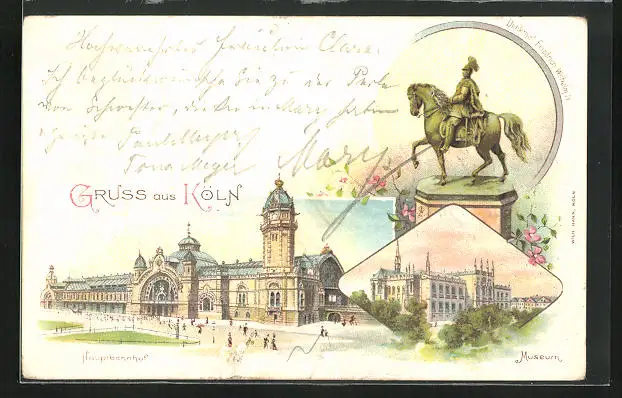 Hochverehrtes Fräulein Clara.
Ich beglückwünsche Sie zu der Perle
von Schwester, die Sie in Mary haben
Mary
GRUSS aus KÖLN
Denkmal Friedrich Wilhelm IV
WILH. HAHN, KÖLN
Hauptbahnhof
Museum.